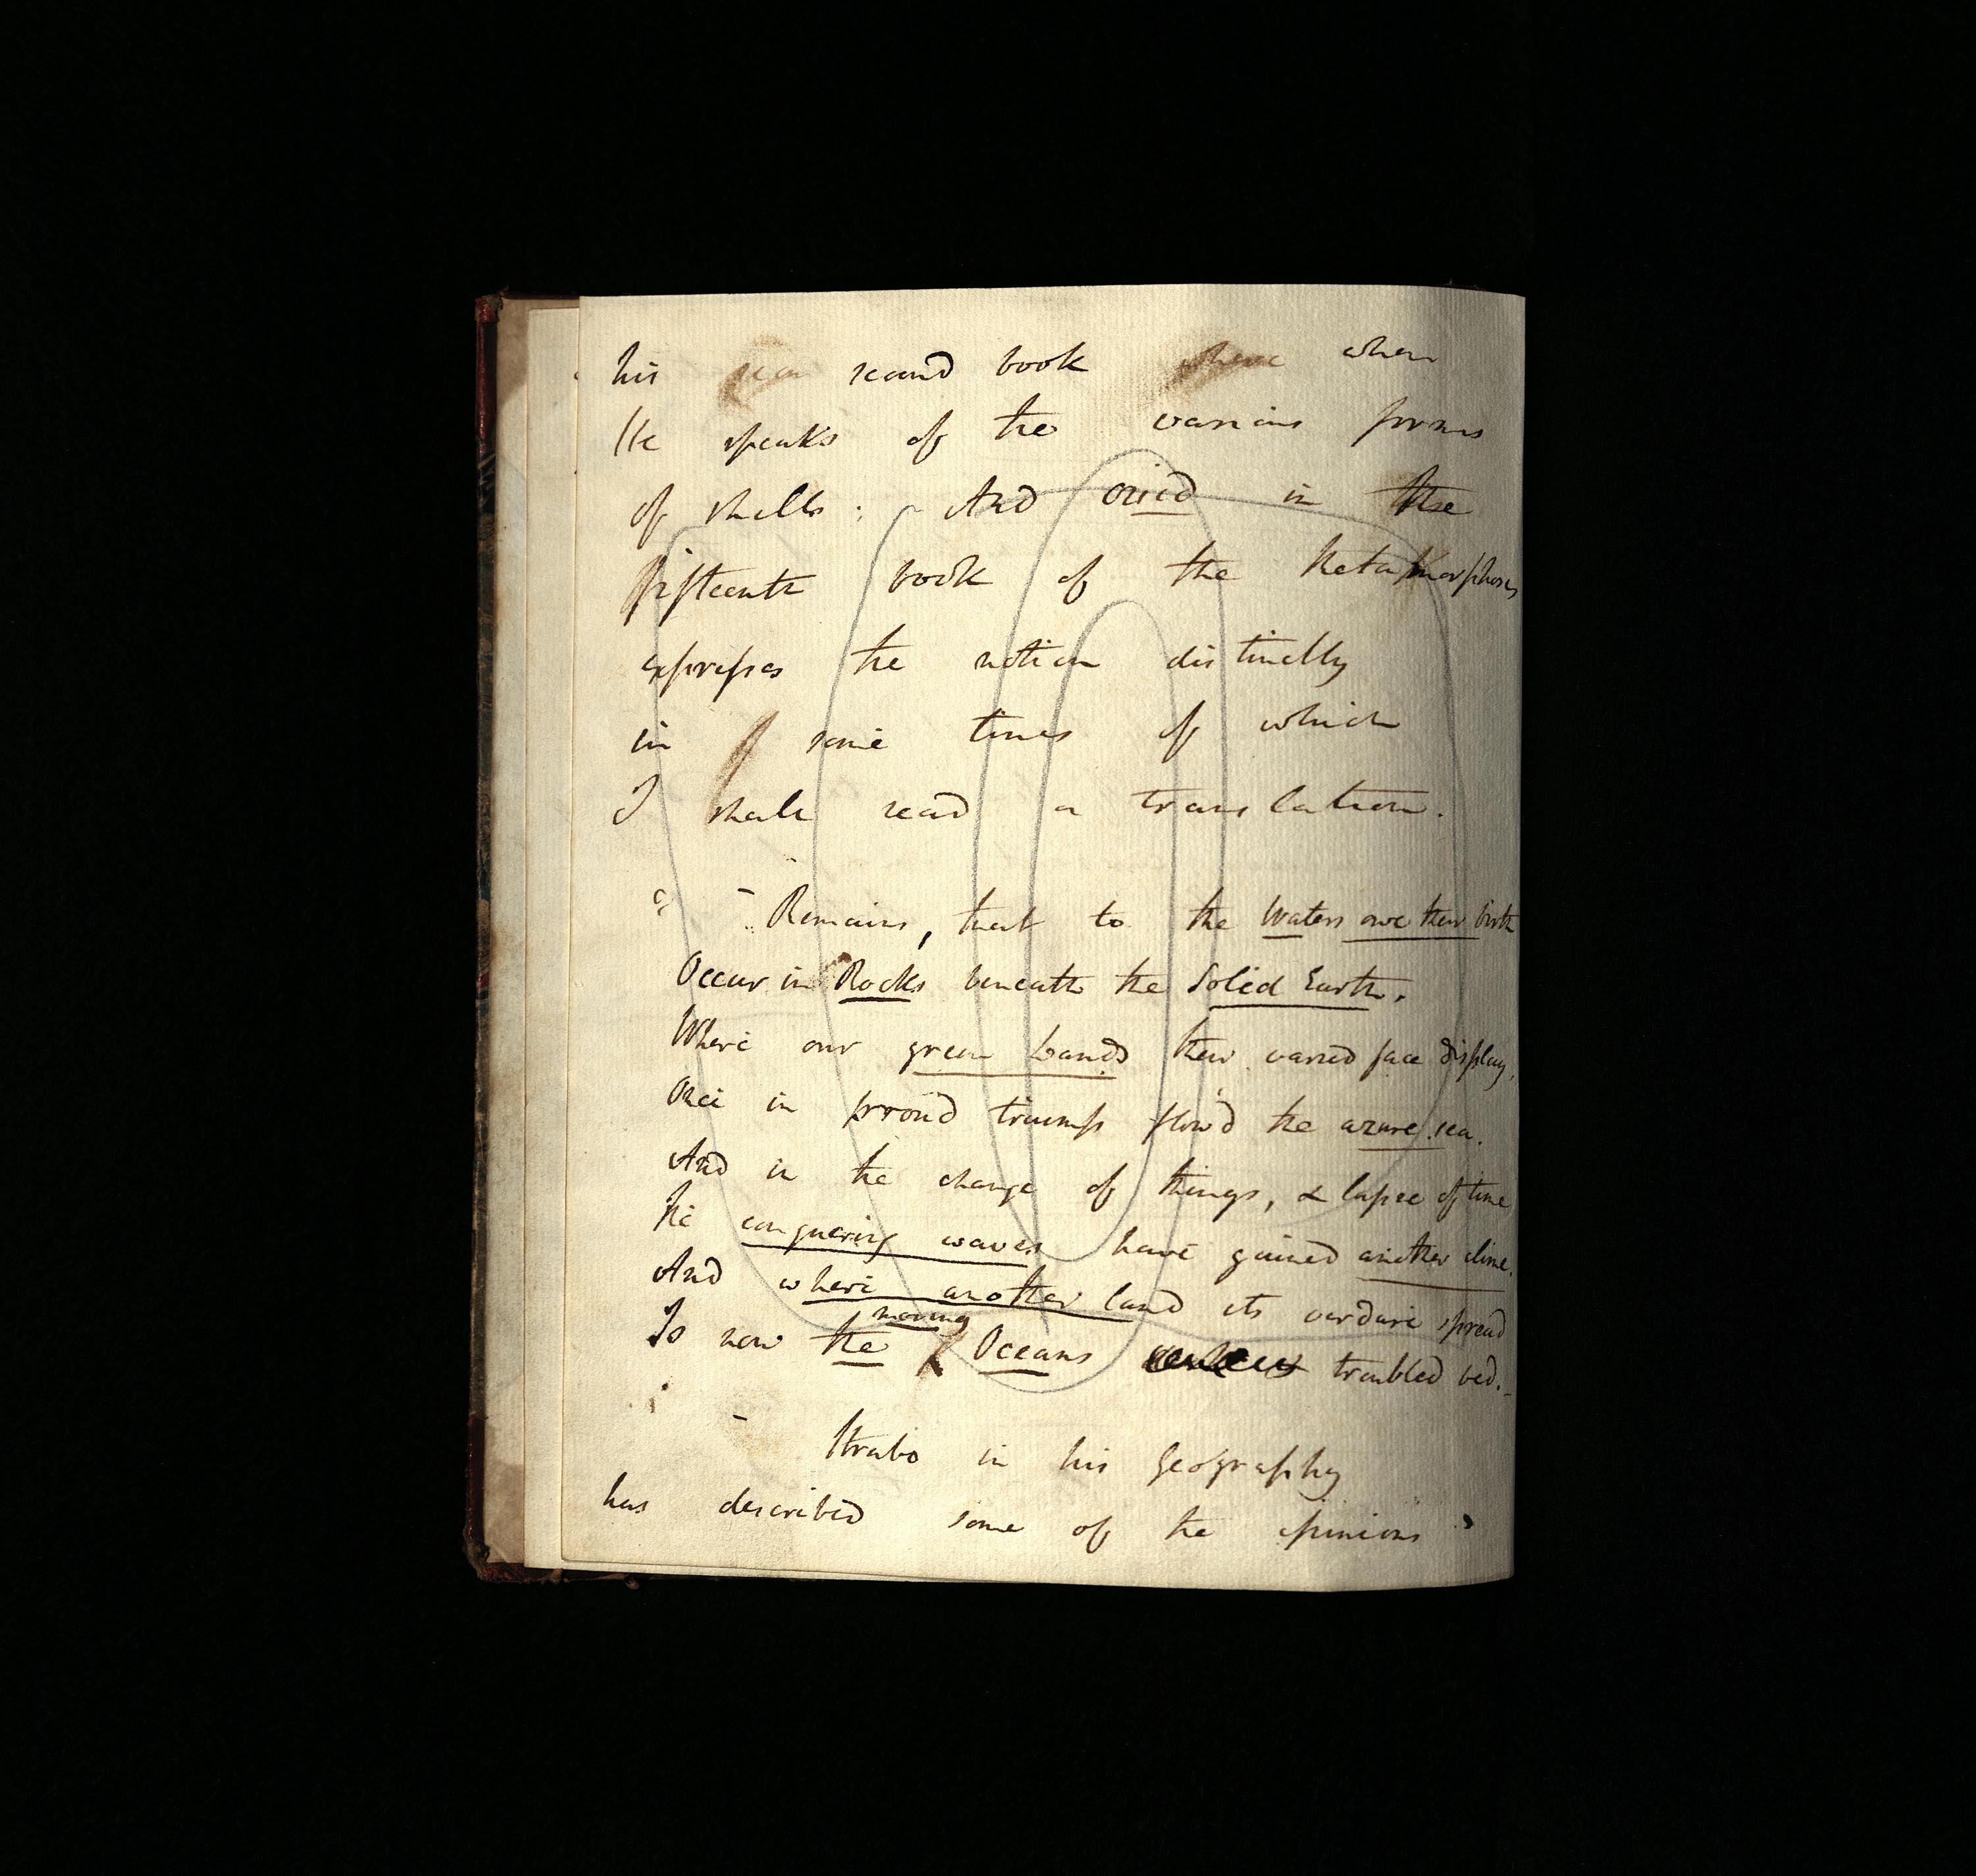 his second book when
He speaks of the various forms
of shells : And ovid in the
fifteenth book of the Metamorphoses
expresses the notion distinctly
in some lines of which
I shall read a translation.
"– Remains, that to the Waters owe their birth
Occur in Rocks beneath the Solid Earth.
Where our green Lands their varied face display,
Once in proud triumph flow'd the azure sea.
And in the change of things, & lapse of time
The conquering waves have gained another clime.
And where another land its verdure spread
Is now the moving Oceans troubled bed. –
– Strabo in his Geography
has described some of the opinions